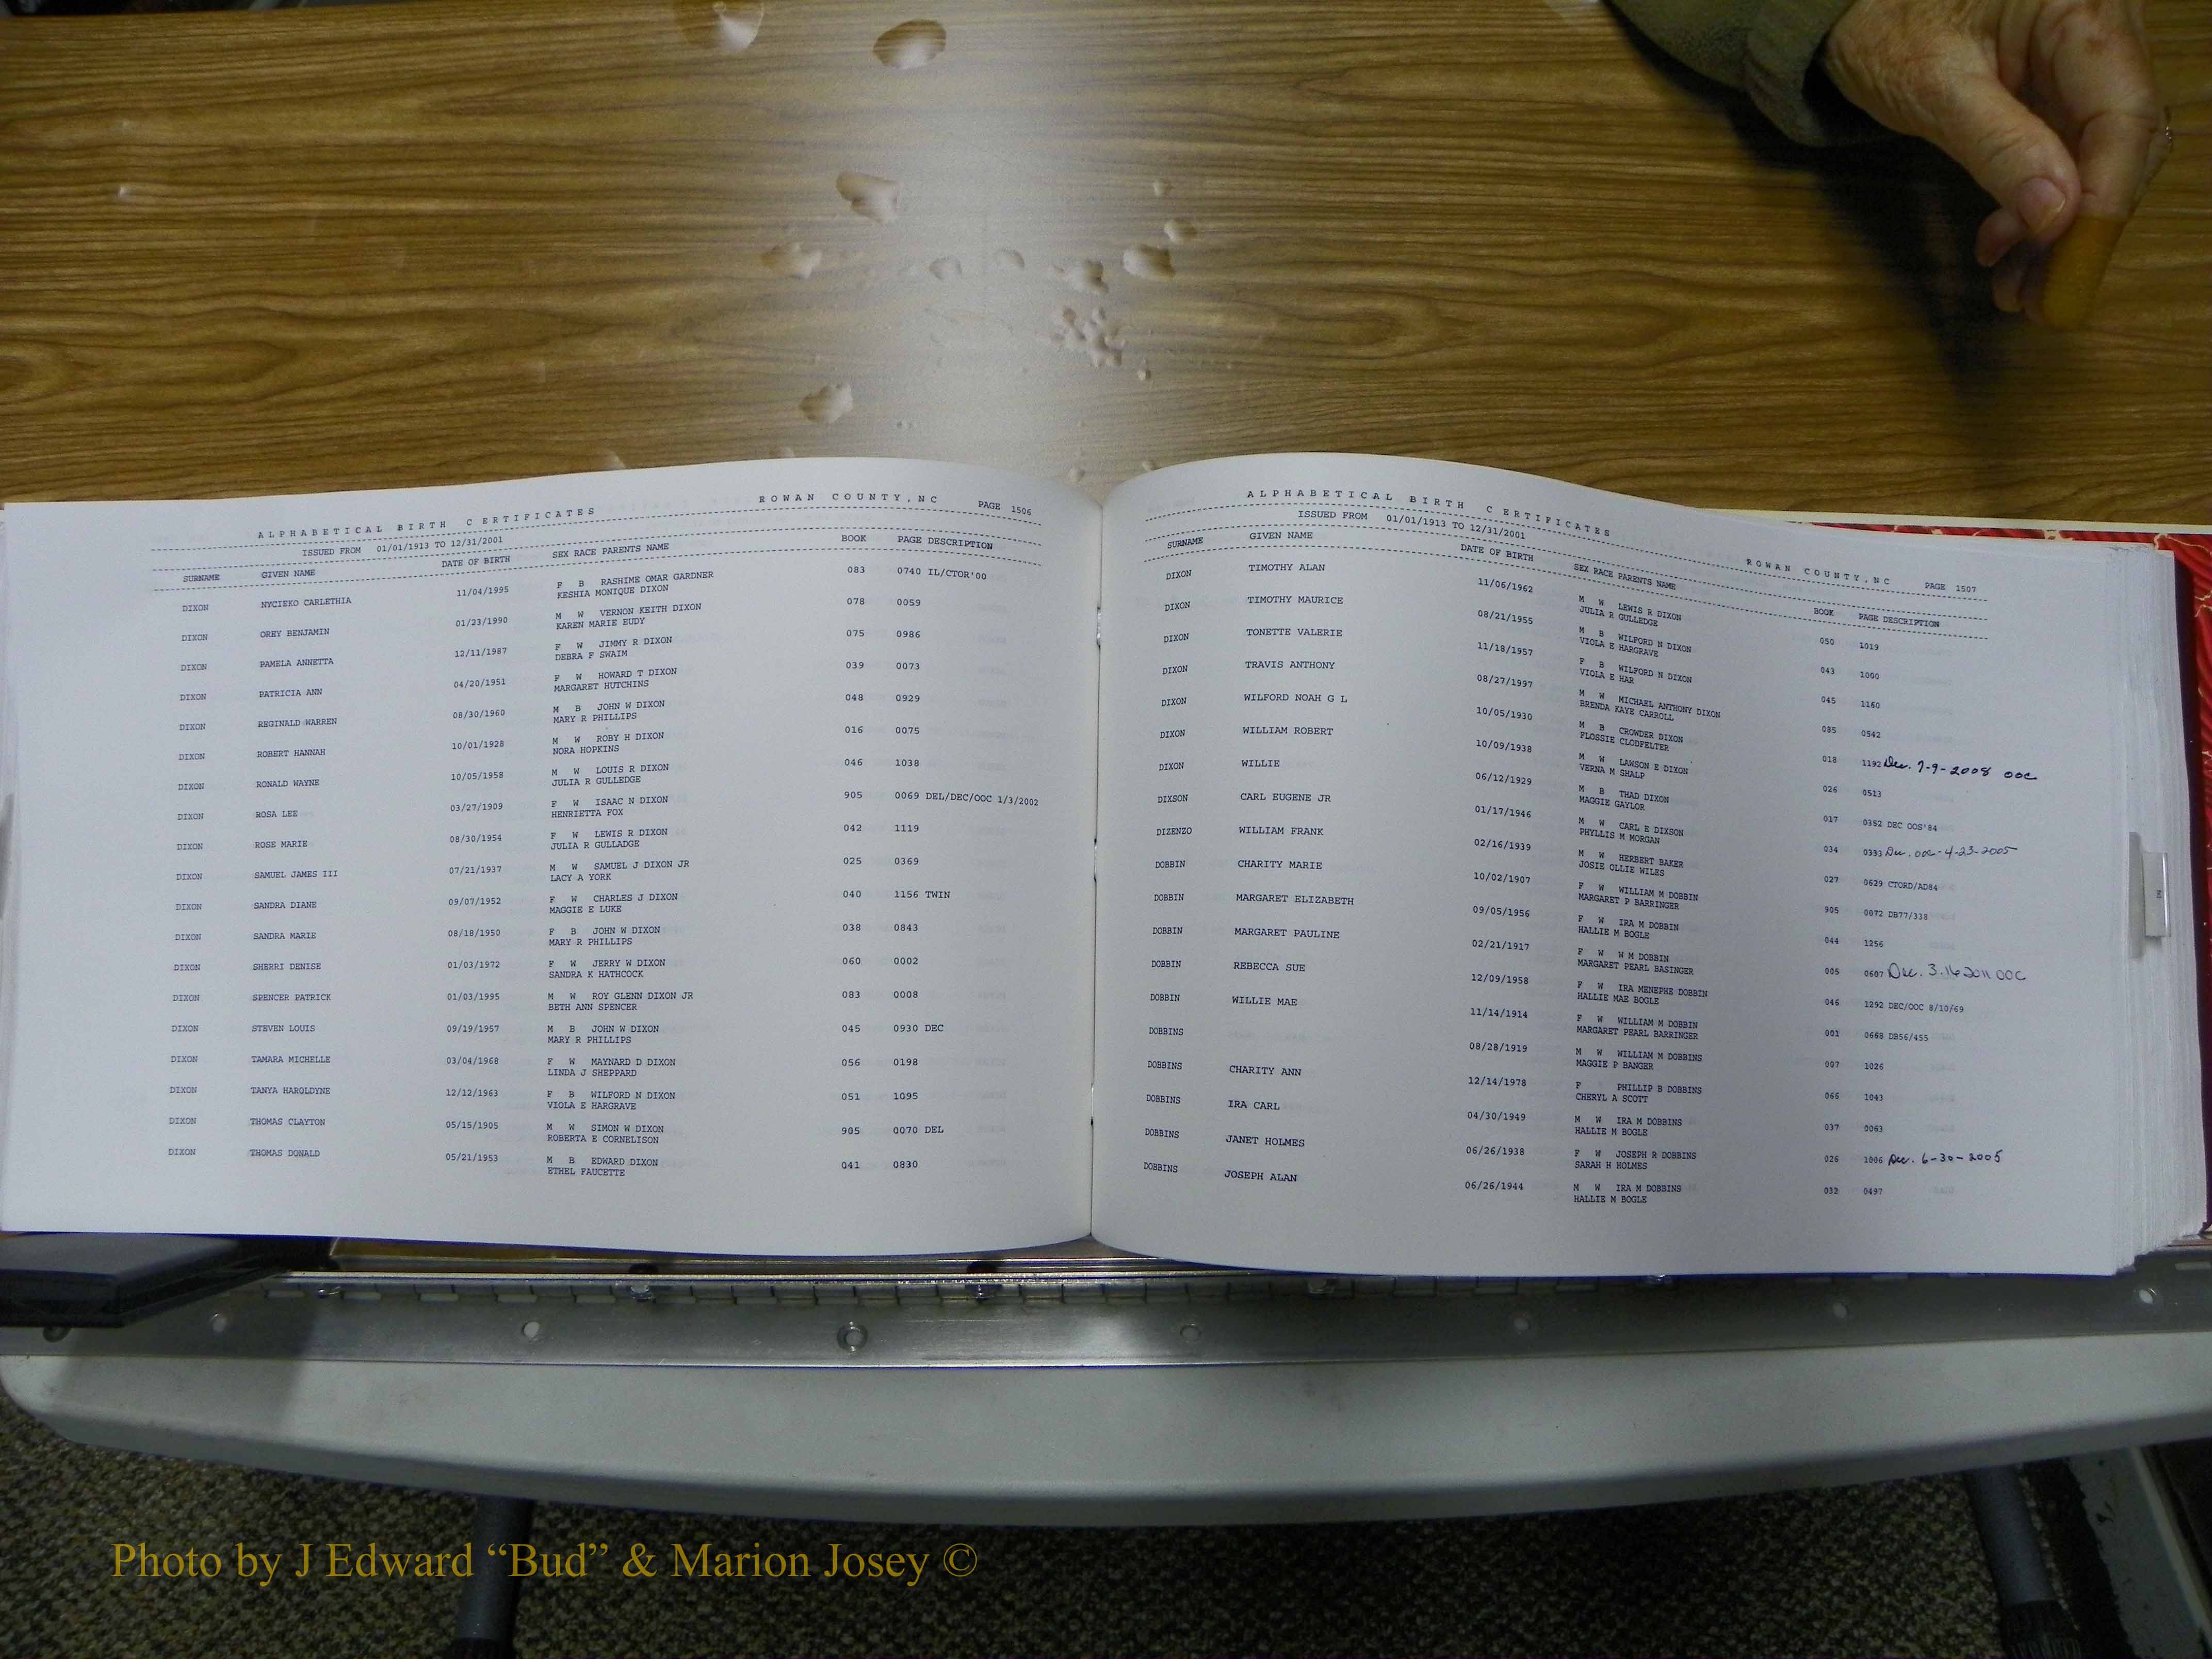 ALPHABETICAL BIRTH CERTIFICATES ROWAN COUNTY, NC PAGE 1506
ISSUED FROM 01/01/1913 TO 12/31/2001
SURNAME GIVEN NAME DATE OF BIRTH SEX RACE PARENTS NAME BOOK PAGE DESCRIPTION
DIXON NYCIEKO CARLETHIA 11/04/1995 F B RASHIME OMAR GARDNER 083 0740 IL/CTOR'00
KESHIA MONIQUE DIXON
DIXON OREY BENJAMIN 01/23/1990 M W VERNON KEITH DIXON 078 0059
KAREN MARIE EUDY
DIXON PAMELA ANNETTA 12/11/1987 F W JIMMY R DIXON 075 0986
DEBRA F SWAIM
DIXON PATRICIA ANN 04/20/1951 F W HOWARD T DIXON 039 0073
MARGARET HUTCHINS
DIXON REGINALD WARREN 08/30/1960 M B JOHN W DIXON 048 0929
MARY R PHILLIPS
DIXON ROBERT HANNAH 10/01/1928 M W ROBY H DIXON 016 0075
NORA HOPKINS
DIXON RONALD WAYNE 10/05/1958 M W LOUIS R DIXON 046 1038
JULIA R GULLEDGE
DIXON ROSA LEE 03/27/1909 F W ISAAC N DIXON 905 0069 DEL/DEC/OOC 1/3/2002
HENRIETTA FOX
DIXON ROSE MARIE 08/30/1954 F W LEWIS R DIXON 042 1119
JULIA R GULLADGE
DIXON SAMUEL JAMES III 07/21/1937 M W SAMUEL J DIXON JR 025 0369
LACY A YORK
DIXON SANDRA DIANE 09/07/1952 F W CHARLES J DIXON 040 1156 TWIN
MAGGIE E LUKE
DIXON SANDRA MARIE 08/18/1950 F B JOHN W DIXON 038 0843
MARY R PHILLIPS
DIXON SHERRI DENISE 01/03/1972 F W JERRY W DIXON 060 0002
SANDRA K HATHCOCK
DIXON SPENCER PATRICK 01/03/1995 M W ROY GLENN DIXON JR 083 0008
BETH ANN SPENCER
DIXON STEVEN LOUIS 09/19/1957 M B JOHN W DIXON 045 0930 DEC
MARY R PHILLIPS
DIXON TAMARA MICHELLE 03/04/1968 F W MAYNARD D DIXON 056 0198
LINDA J SHEPPARD
DIXON TANYA HAROLDYNE 12/12/1963 F B WILFORD N DIXON 051 1095
VIOLA E HARGRAVE
DIXON THOMAS CLAYTON 05/15/1905 M W SIMON W DIXON 905 0070 DEL
ROBERTA E CORNELISON
DIXON THOMAS DONALD 05/21/1953 M B EDWARD DIXON 041 0830
ETHEL FAUCETTE
ALPHABETICAL BIRTH CERTIFICATES ROWAN COUNTY, NC PAGE 1507
ISSUED FROM 01/01/1913 TO 12/31/2001
SURNAME GIVEN NAME DATE OF BIRTH SEX RACE PARENTS NAME BOOK PAGE DESCRIPTION
DIXON TIMOTHY ALAN 11/06/1962 M W LEWIS R DIXON 050 1019
JULIA R GULLEDGE
DIXON TIMOTHY MAURICE 08/21/1955 M B WILFORD N DIXON 043 1000
VIOLA E HARGRAVE
DIXON TONETTE VALERIE 11/18/1957 F B WILFORD N DIXON 045 1160
VIOLA E HAR
DIXON TRAVIS ANTHONY 08/27/1997 M W MICHAEL ANTHONY DIXON 085 0542
BRENDA KAYE CARROLL
DIXON WILFORD NOAH G L 10/05/1930 M B CROWDER DIXON 018 1192 Dec. 7-9-2008 OOC
FLOSSIE CLODFELTER
DIXON WILLIAM ROBERT 10/09/1938 M W LAWSON E DIXON 026 0513
VERNA M SHALP
DIXON WILLIE 06/12/1929 M B THAD DIXON 017 0352 DEC OOS'84
MAGGIE GAYLOR
DIXSON CARL EUGENE JR 01/17/1946 M W CARL E DIXSON 034 0393 Dec. OOC-4-23-2005
PHYLLIS M MORGAN
DIZENZO WILLIAM FRANK 02/16/1939 M W HERBERT BAKER 027 0629 CTORD/AD84
JOSIE OLLIE WILES
DOBBIN CHARITY MARIE 10/02/1907 F W WILLIAM M DOBBIN 905 0072 DB77/338
MARGARET P BARRINGER
DOBBIN MARGARET ELIZABETH 09/05/1956 F W IRA M DOBBIN 044 1256
HALLIE M BOGLE
DOBBIN MARGARET PAULINE 02/21/1917 F W W M DOBBIN 005 0607 Dec. 3.16 2011 OOC
MARGARET PEARL BASINGER
DOBBIN REBECCA SUE 12/09/1958 F W IRA MENEPHE DOBBIN 046 1292 DEC/OOC 8/10/69
HALLIE MAE BOGLE
DOBBIN WILLIE MAE 11/14/1914 F W WILLIAM M DOBBIN 001 0668 DB56/455
MARGARET PEARL BARRINGER
DOBBINS 08/28/1919 M W WILLIAM M DOBBINS 007 1026
MAGGIE P BANGER
DOBBINS CHARITY ANN 12/14/1978 F PHILLIP B DOBBINS 066 1043
CHERYL A SCOTT
DOBBINS IRA CARL 04/30/1949 M W IRA M DOBBINS 037 0063
HALLIE M BOGLE
DOBBINS JANET HOLMES 06/26/1938 F W JOSEPH R DOBBINS 026 1006 Dec. 6-30-2005
SARAH H HOLMES
DOBBINS JOSEPH ALAN 06/26/1944 M W IRA M DOBBINS 032 0497
HALLIE M BOGLE
Photo by J Edward “Bud” & Marion Josey ©